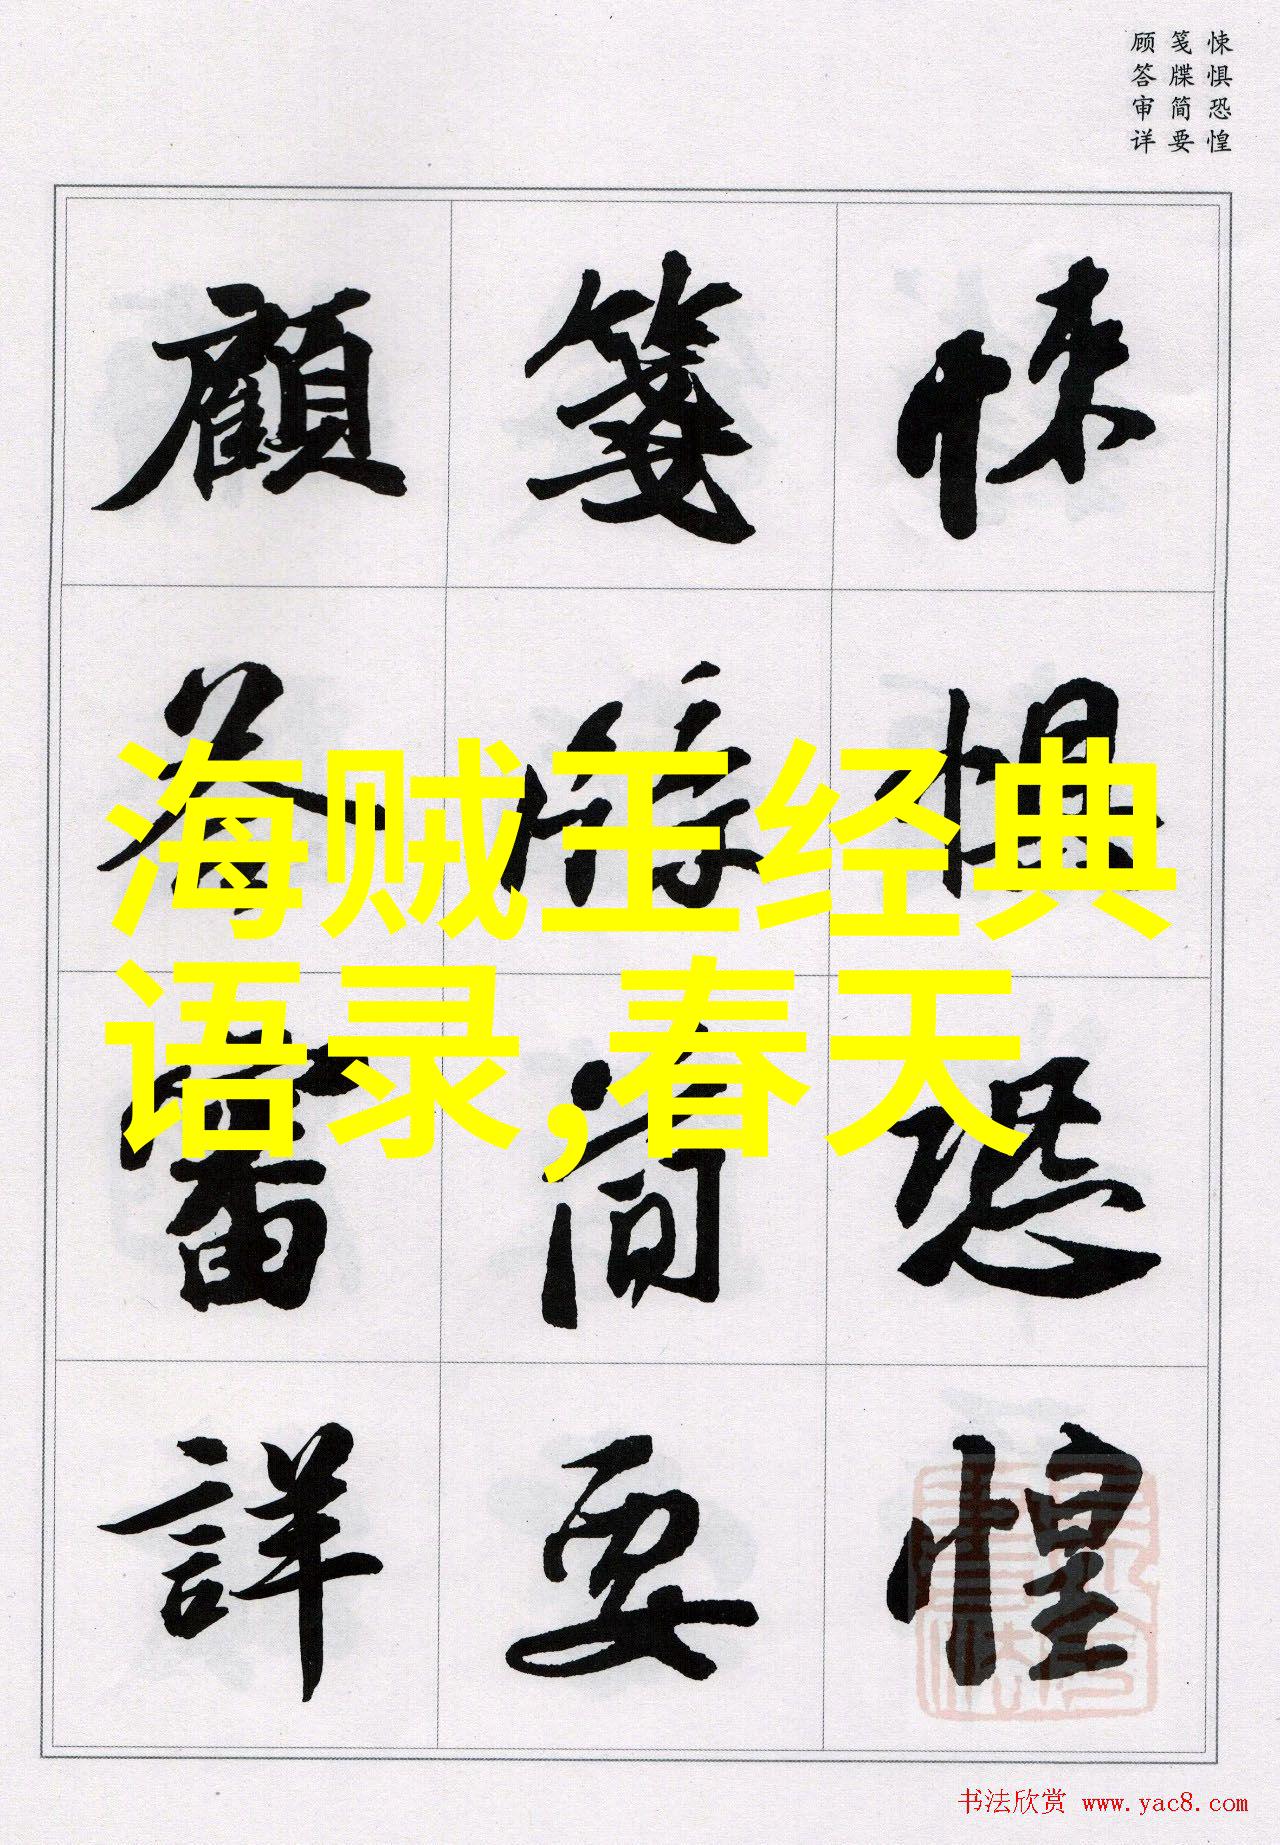 悚惧恐惶
笺牒简要
顾答审详
悚惧恐惶
笺牒简要
顧答審詳
海贼王经典
语录,春天
书法欣赏 www.yac8.com